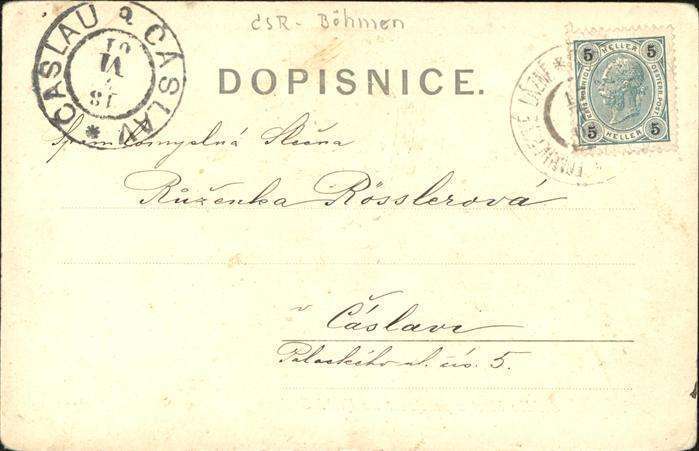 čSR - Böhmen
DOPISNICE.
CASLAU a ČÁSLAV *
18
VI
01
LÁZNĚ *
5 HELLER 5
5 HELLER 5
Slečna
Růženka Rösslerová
v
Čáslavi
Palackého ul. čís. 5.